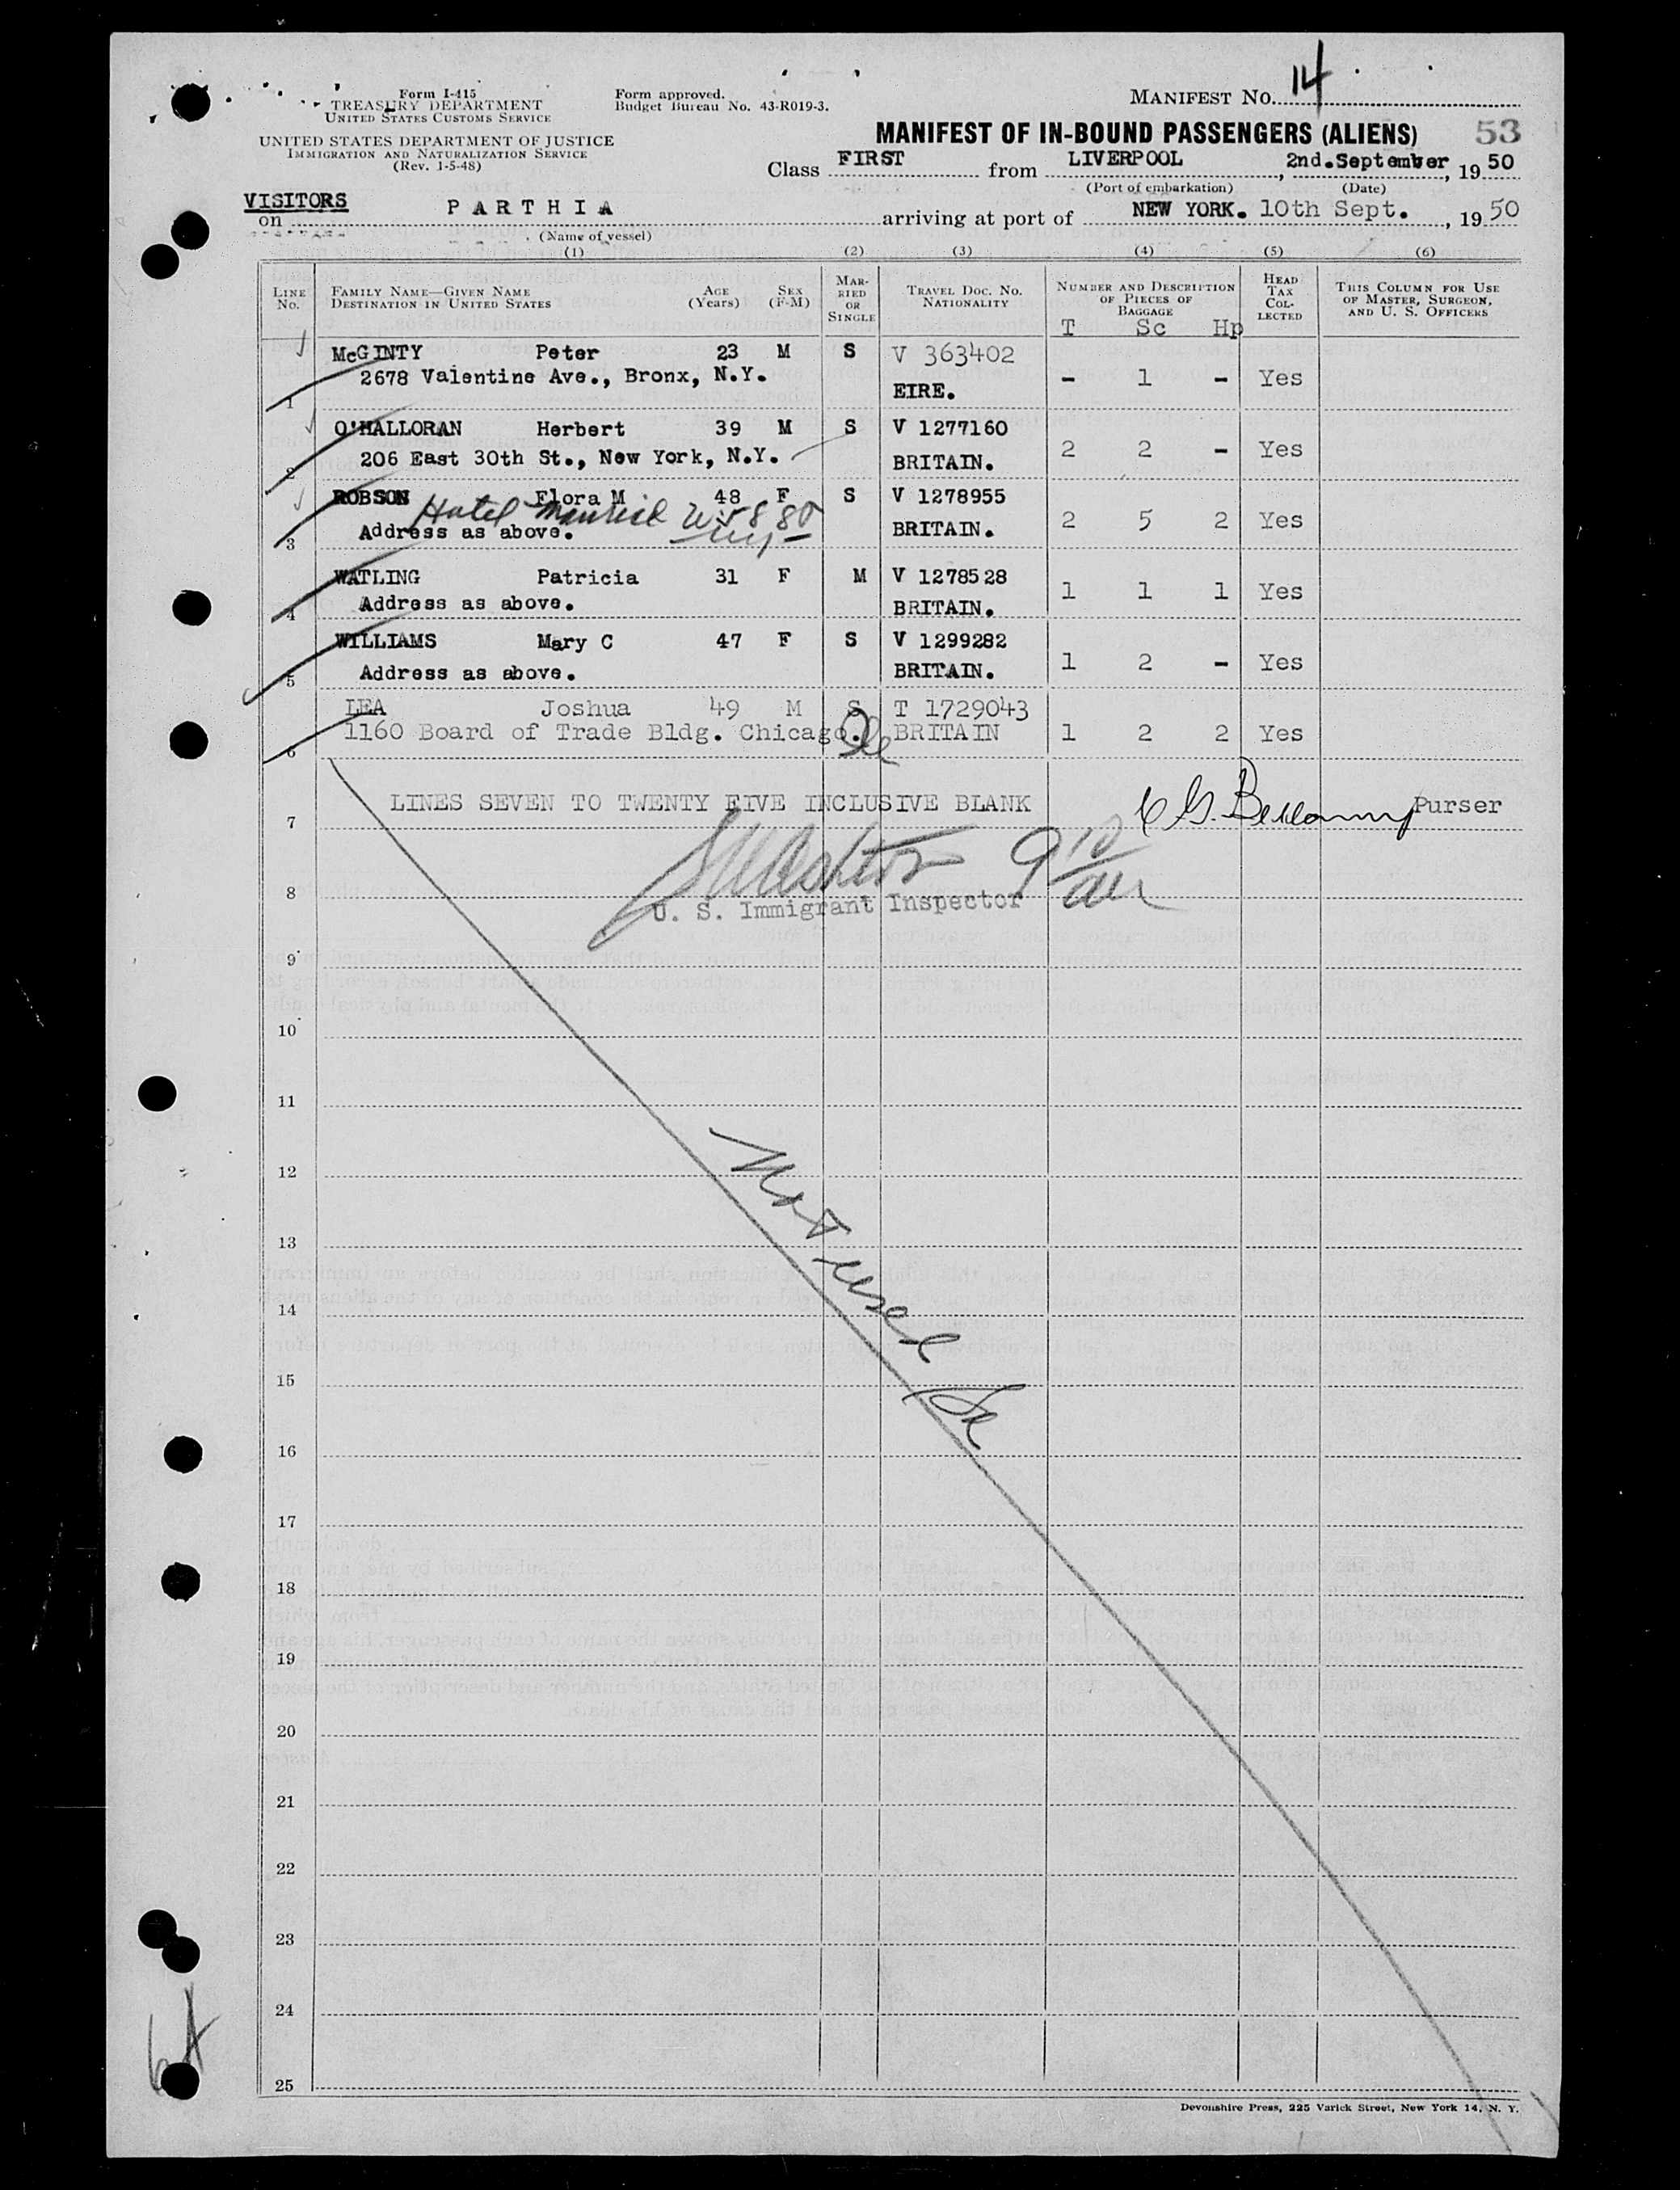 Form I-415
TREASURY DEPARTMENT
UNITED STATES CUSTOMS SERVICE
UNITED STATES DEPARTMENT OF JUSTICE
IMMIGRATION AND NATURALIZATION SERVICE
(Rev. 1-5-48)
Form approved.
Budget Bureau No. 43-R019-3.
MANIFEST NO. 14
MANIFEST OF IN-BOUND PASSENGERS (ALIENS) 53
Class FIRST from LIVERPOOL, 2nd.September, 1950
(Port of embarkation) (Date)
VISITORS
on PARTHIA arriving at port of NEW YORK. 10th Sept., 1950
(Name of vessel)
(1) (2) (3) (4) (5) (6)
LINE NO. FAMILY NAME—GIVEN NAME DESTINATION IN UNITED STATES AGE (Years) SEX (F-M) MARRIED OR SINGLE TRAVEL DOC. NO. NATIONALITY NUMBER AND DESCRIPTION OF PIECES OF BAGGAGE HEAD TAX COLLECTED THIS COLUMN FOR USE OF MASTER, SURGEON, AND U. S. OFFICERS
T Sc Hp
McGINTY Peter 23 M S V 363402
1 2678 Valentine Ave., Bronx, N.Y. EIRE. - 1 - Yes
O'HALLORAN Herbert 39 M S V 1277160
2 206 East 30th St., New York, N.Y. BRITAIN. 2 2 - Yes
ROBSON Flora M 48 F S V 1278955
Hotel
3 Address as above. BRITAIN. 2 5 2 Yes
WATLING Patricia 31 F M V 1278528
4 Address as above. BRITAIN. 1 1 1 Yes
WILLIAMS Mary C 47 F S V 1299282
5 Address as above. BRITAIN. 1 2 - Yes
LEA Joshua 49 M S T 1729043
6 1160 Board of Trade Bldg. Chicago. BRITAIN 1 2 2 Yes
7 LINES SEVEN TO TWENTY FIVE INCLUSIVE BLANK Purser
8 U. S. Immigrant Inspector
9
10
11
12
13
14
15
16
17
18
19
20
21
22
23
24
25
Not used
Devonshire Press, 225 Varick Street, New York 14, N. Y.